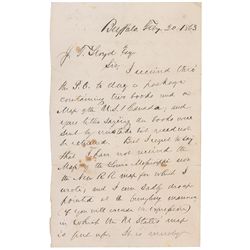 Buffalo Fby. 20. 1863
J. T. Lloyd Esq
Sir, I received thro
the P.O. to day a package
containing two books and a
Map of the U.S. & Canada, and
your letter saying the books were
sent by mistake but need not be
returned. But I regret to say
that I have not received the
Map of the
the New R R map for which I
wrote, and I am sadly disap
pointed at the
(if you will excuse the expression)
in which the Rl States map
is put up. It is